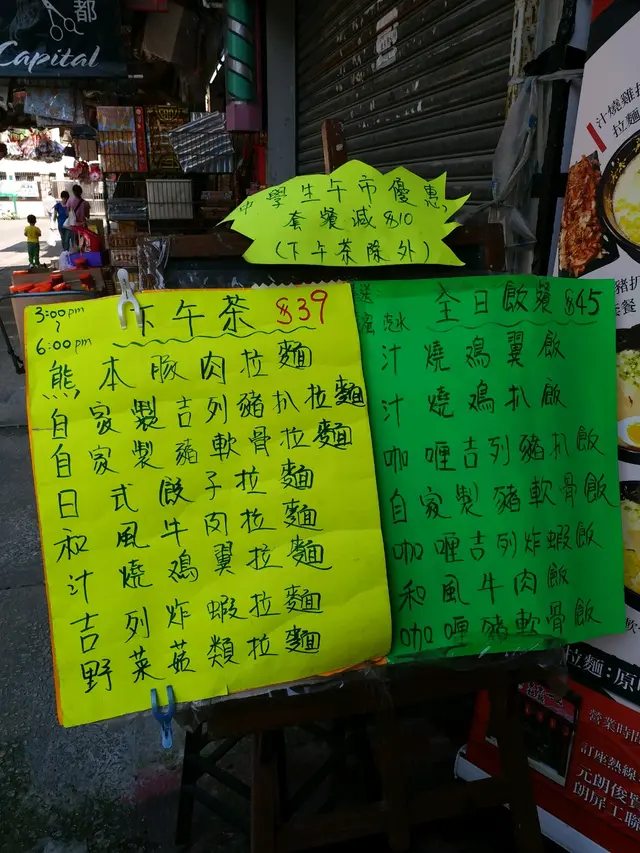 都
Capital
中學生午市優惠,
套餐減$10
(下午茶除外)
3:00pm
~
6:00pm
下午茶 $39
熊本豚肉拉麵
自家製吉列豬扒拉麵
自家製豬軟骨拉麵
日式餃子拉麵
和風牛肉拉麵
汁燒鷄翼拉麵
吉列炸蝦拉麵
野菜菇類拉麵
送
全日飯類 $45
汁燒鷄翼飯
汁燒鷄扒飯
咖喱吉列豬扒飯
自家製豬軟骨飯
咖喱吉列炸蝦飯
和風牛肉飯
咖喱豬軟骨飯
汁燒雞扒
拉麵
豬扒
拉麵:原
營業時間
訂座熱線
元朗俊賢
朗屏工聯